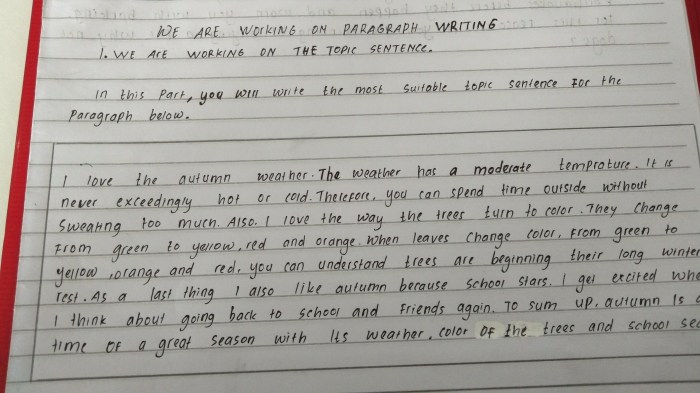 WE ARE WORKING ON PARAGRAPH WRITING
1. WE ARE WORKING ON THE TOPIC SENTENCE.
In this Part, you will write the most suitable topic sentence for the
Paragraph below.
I love the autumn weather. The weather has a moderate temprature. It is
never exceedingly hot or cold. Therefore, you can spend time outside without
sweating too much. Also, I love the way the trees turn to color. They change
From green to yellow, red and orange. When leaves change color, From green to
yellow, orange and red, you can understand trees are beginning their long winter
rest. As a last thing I also like autumn because school stars. I get excited
I think about going back to school and Friends again. To sum up, autumn is
time of a great season with its weather, color of the trees and school